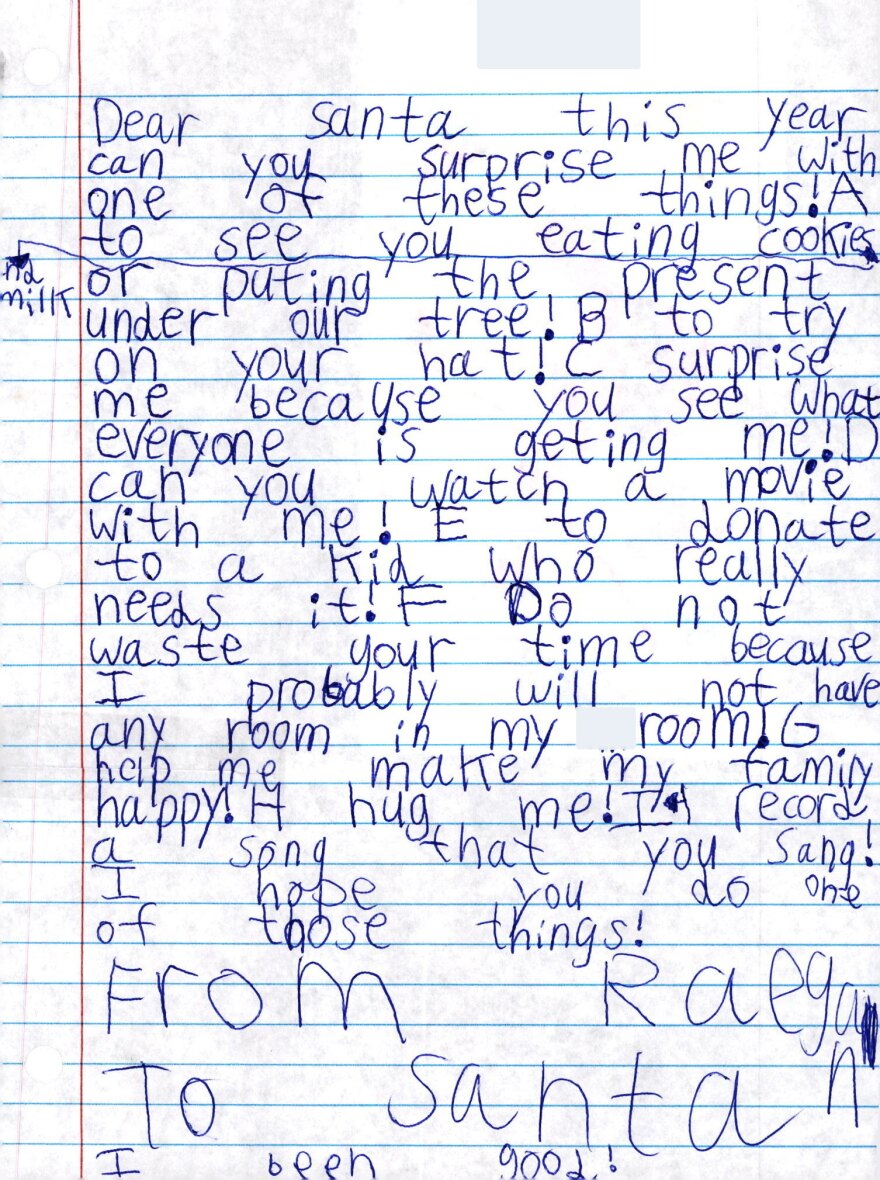 Dear santa this year
can you surprise me with
one of these things! A
to see you eating cookies
nd milk
or puting the present
under our tree! B to try
on your hat! C surprise
me because you see what
everyone is geting me! D
can you watch a movie
with me! E to donate
to a kid who really
needs it! F Do not
waste your time because
I probably will not have
any room in my room! G
help me make my family
happy! H hug me! I record
a song that you sang!
I hope you do one
of those things!
From Raegan
To Santa
I been good!